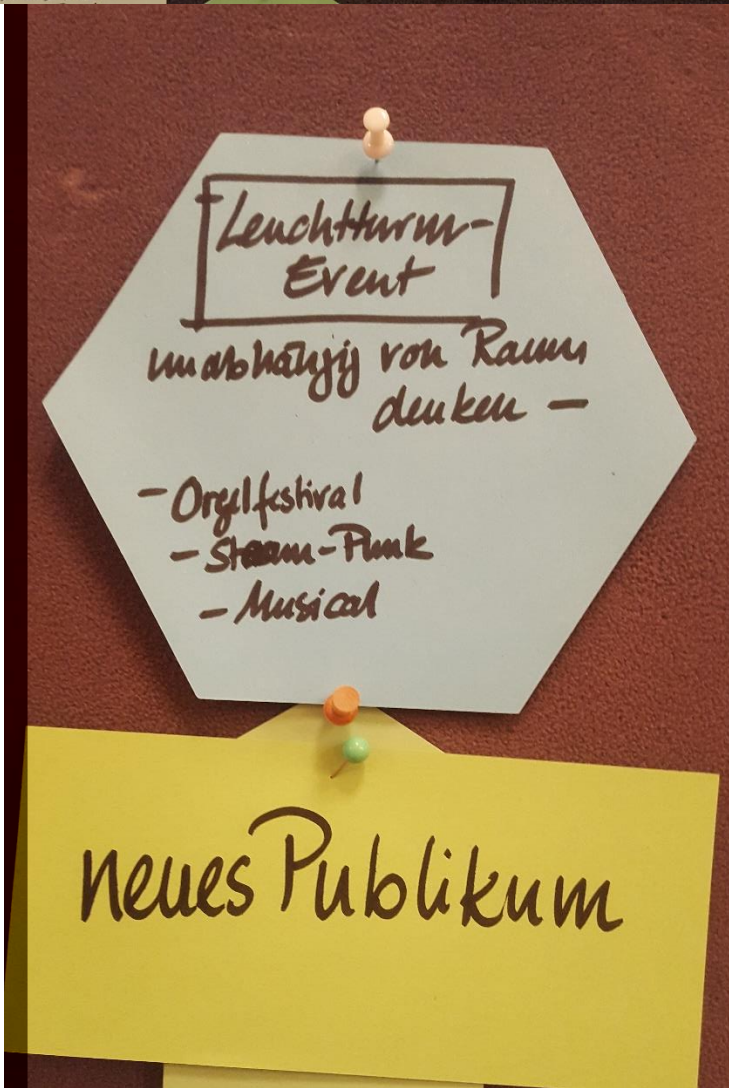 Leuchtturm-
Event
unabhängig von Raum
denken -
- Orgelfestival
- Steam-Punk
- Musical
neues Publikum